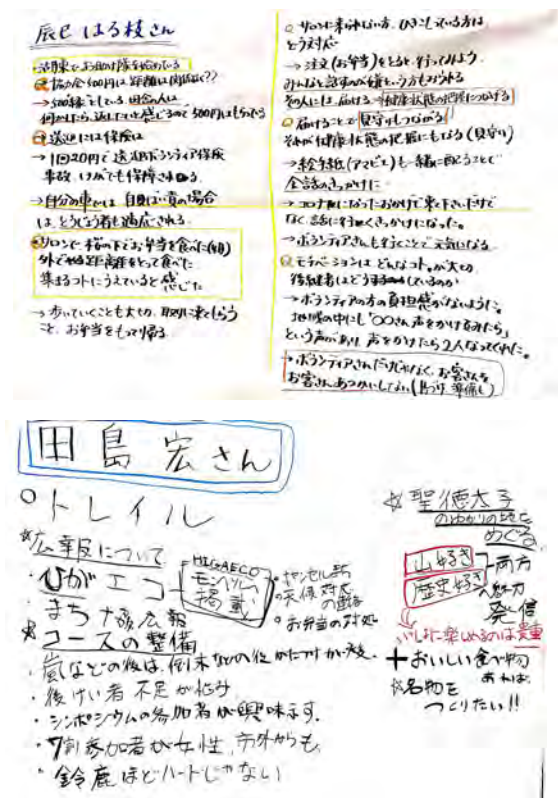 辰巳 はる枝さん
協力金500円は、年齢は関係なく??
→500縁としている。田舎の人は
何かしたら、返したいと感じるので500円はもらってる
送迎には保険は
→1回20円で送迎ボランティア保険
事故、けがでも保障される
→自分の車では自賠責の場合
サロンで、桜の下でお弁当を食べた
外で距離をとって食べた
集まるコトにうえていると感じた
→歩いていくことも大切、取りに来てもらう
こと、お弁当をもって帰る
サロンに来られない方、ひきこもっている方は、
どう対応
→注文(お弁当)をとると、行ってみよう
みんなと話すのが嫌という方もみられる
その人には、届ける→健康状態の把握につなげる
届けることで見守りもつながる
それが健康状態の把握にもなる(見守り)
→絵手紙(アマビエ)も一緒に配ることで
会話のきっかけに
→コロナ禍になったおかげで来て下さいだけで
なく、話に行くきっかけになった。
→ボランティアさんも行くことで元気になる
モチベーションはどんなコトが大切
後継者はどうしているのか
→ボランティアの方の負担感がないように。
地域の中にも「〇〇さん声をかけてみたら」
という声があり、声をかけたら2人なってくれた。
→ボランティアさんだけじゃなく、お客さんを
お客さんあつかいしてない(片づけ 準備も)
田島 宏さん
トレイル
広報について
・ひがエコ
HIGAECO
モンベル
掲載
キャンセル待ち
天候対応
お弁当の対処
コースの整備
・嵐などの後は、倒木など
・後けい者不足が悩み
・シンポジウムの参加者が興味示す。
・7割参加者が女性、市外からも
・鈴鹿ほどハードじゃない
聖徳太子
のゆかりの地を
めぐる。
山好き
歴史好き
両方
へ魅力
発信
いっしょに楽しめるのは貴重
+おいしい食べ物
あれば。
名物を
つくりたい!!